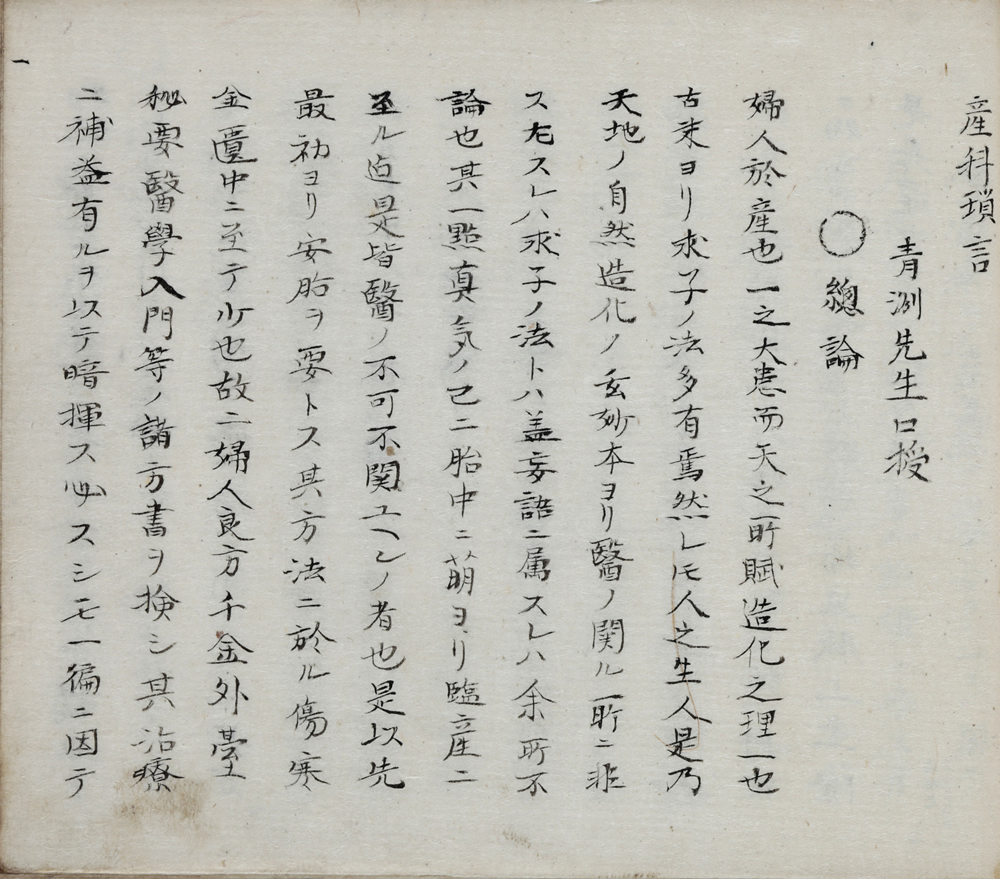 産科瑣言
青洲先生口授
○總論
婦人於産也一之大患而天之所賦造化之理一也
古来ヨリ求子ノ法多有焉然レモ人之生人是乃
天地ノ自然造化ノ玄妙本ヨリ醫ノ関ル所ニ非
ス左スレハ求子ノ法トハ盖妄語ニ属スレハ余所不
論也其一點真気ノ已ニ胎中ニ萌ヨリ臨産ニ
至ル迫是皆醫ノ不可不関ユヘンノ者也是以先
最初ヨリ安胎ヲ要トス其方法ニ於ル傷寒
金匱中ニ至テ少也故ニ婦人良方千金外臺
秘要醫學入門等ノ諸方書ヲ検シ其治療
ニ補益有ルヲ以テ暗揮ス必スシモ一徧ニ因テ